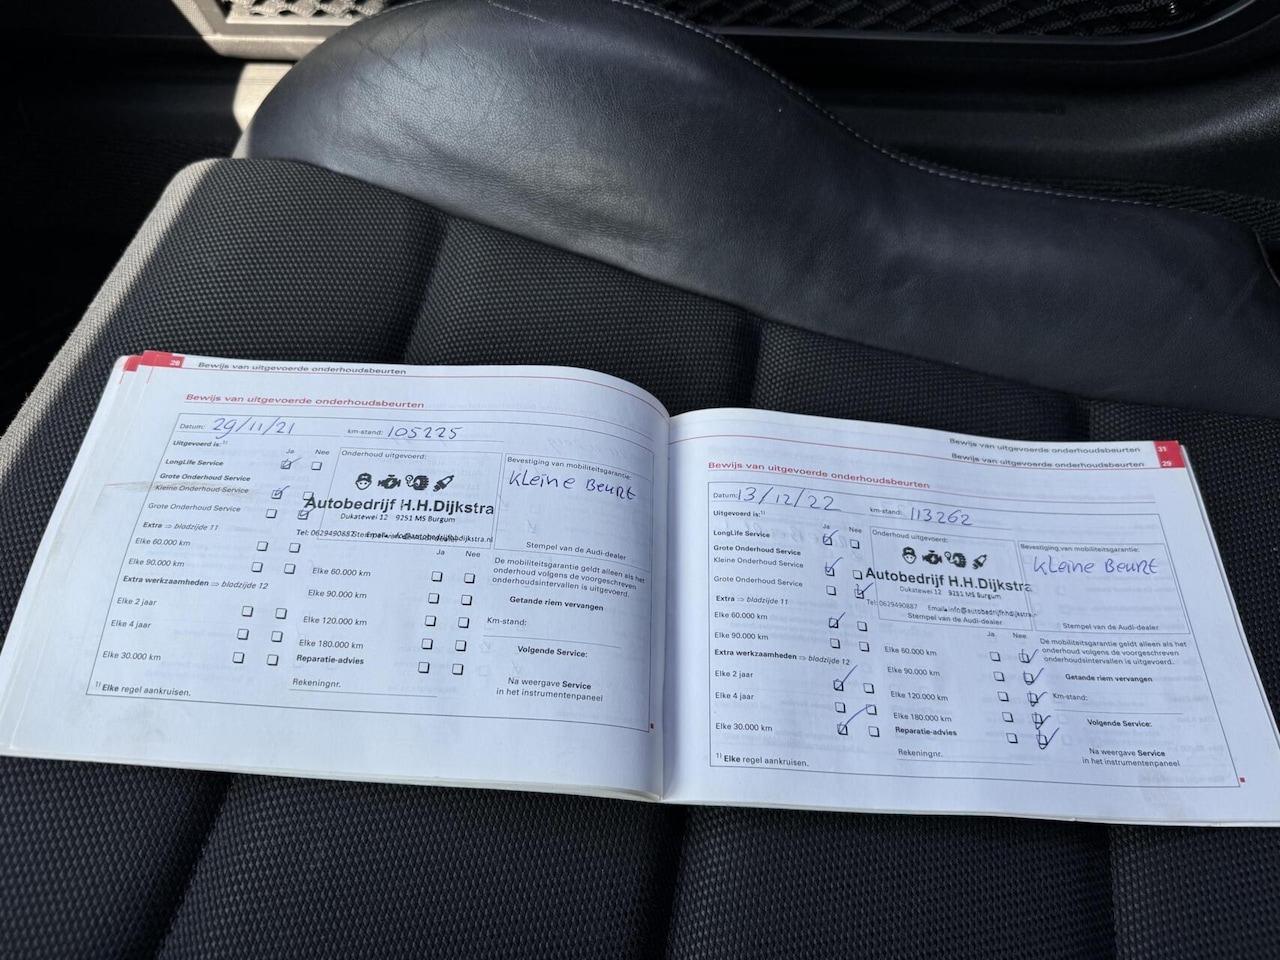 28 Bewijs van uitgevoerde onderhoudsbeurten
Bewijs van uitgevoerde onderhoudsbeurten
Datum: 29/11/21 km-stand: 105225
Uitgevoerd is:¹⁾
Ja Nee
LongLife Service
Grote Onderhoud Service
Kleine Onderhoud Service
Grote Onderhoud Service
Extra ⇒ bladzijde 11
Elke 60.000 km
Elke 90.000 km
Extra werkzaamheden ⇒ bladzijde 12
Elke 2 jaar
Elke 4 jaar
Elke 30.000 km
¹⁾ Elke regel aankruisen.
Onderhoud uitgevoerd:
Autobedrijf H.H.Dijkstra
Dukatewei 12 9251 MS Burgum
Tel: 0629490887
Ja Nee
Elke 60.000 km
Elke 90.000 km
Elke 120.000 km
Elke 180.000 km
Reparatie-advies
Rekeningnr.
Bevestiging van mobiliteitsgarantie:
Kleine Beurt
Stempel van de Audi-dealer
De mobiliteitsgarantie geldt alleen als het
onderhoud volgens de voorgeschreven
onderhoudsintervallen is uitgevoerd.
Getande riem vervangen
Km-stand:
Volgende Service:
Na weergave Service
in het instrumentenpaneel
Bewijs van uitgevoerde onderhoudsbeurten 31
Bewijs van uitgevoerde onderhoudsbeurten 29
Bewijs van uitgevoerde onderhoudsbeurten
Datum: 13/12/22 km-stand: 113262
Uitgevoerd is:¹⁾
Ja Nee
LongLife Service
Grote Onderhoud Service
Kleine Onderhoud Service
Grote Onderhoud Service
Extra ⇒ bladzijde 11
Elke 60.000 km
Elke 90.000 km
Extra werkzaamheden ⇒ bladzijde 12
Elke 2 jaar
Elke 4 jaar
Elke 30.000 km
¹⁾ Elke regel aankruisen.
Onderhoud uitgevoerd:
Autobedrijf H.H.Dijkstra
Dukatewei 12 9251 MS Burgum
Tel: 0629490887 Email: info@autobedrijfhhdijkstra.
Stempel van de Audi-dealer
Ja Nee
Elke 60.000 km
Elke 90.000 km
Elke 120.000 km
Elke 180.000 km
Reparatie-advies
Rekeningnr.
Bevestiging van mobiliteitsgarantie:
Kleine Beurt
Stempel van de Audi-dealer
De mobiliteitsgarantie geldt alleen als het
onderhoud volgens de voorgeschreven
onderhoudsintervallen is uitgevoerd.
Getande riem vervangen
Km-stand:
Volgende Service:
Na weergave Service
in het instrumentenpaneel